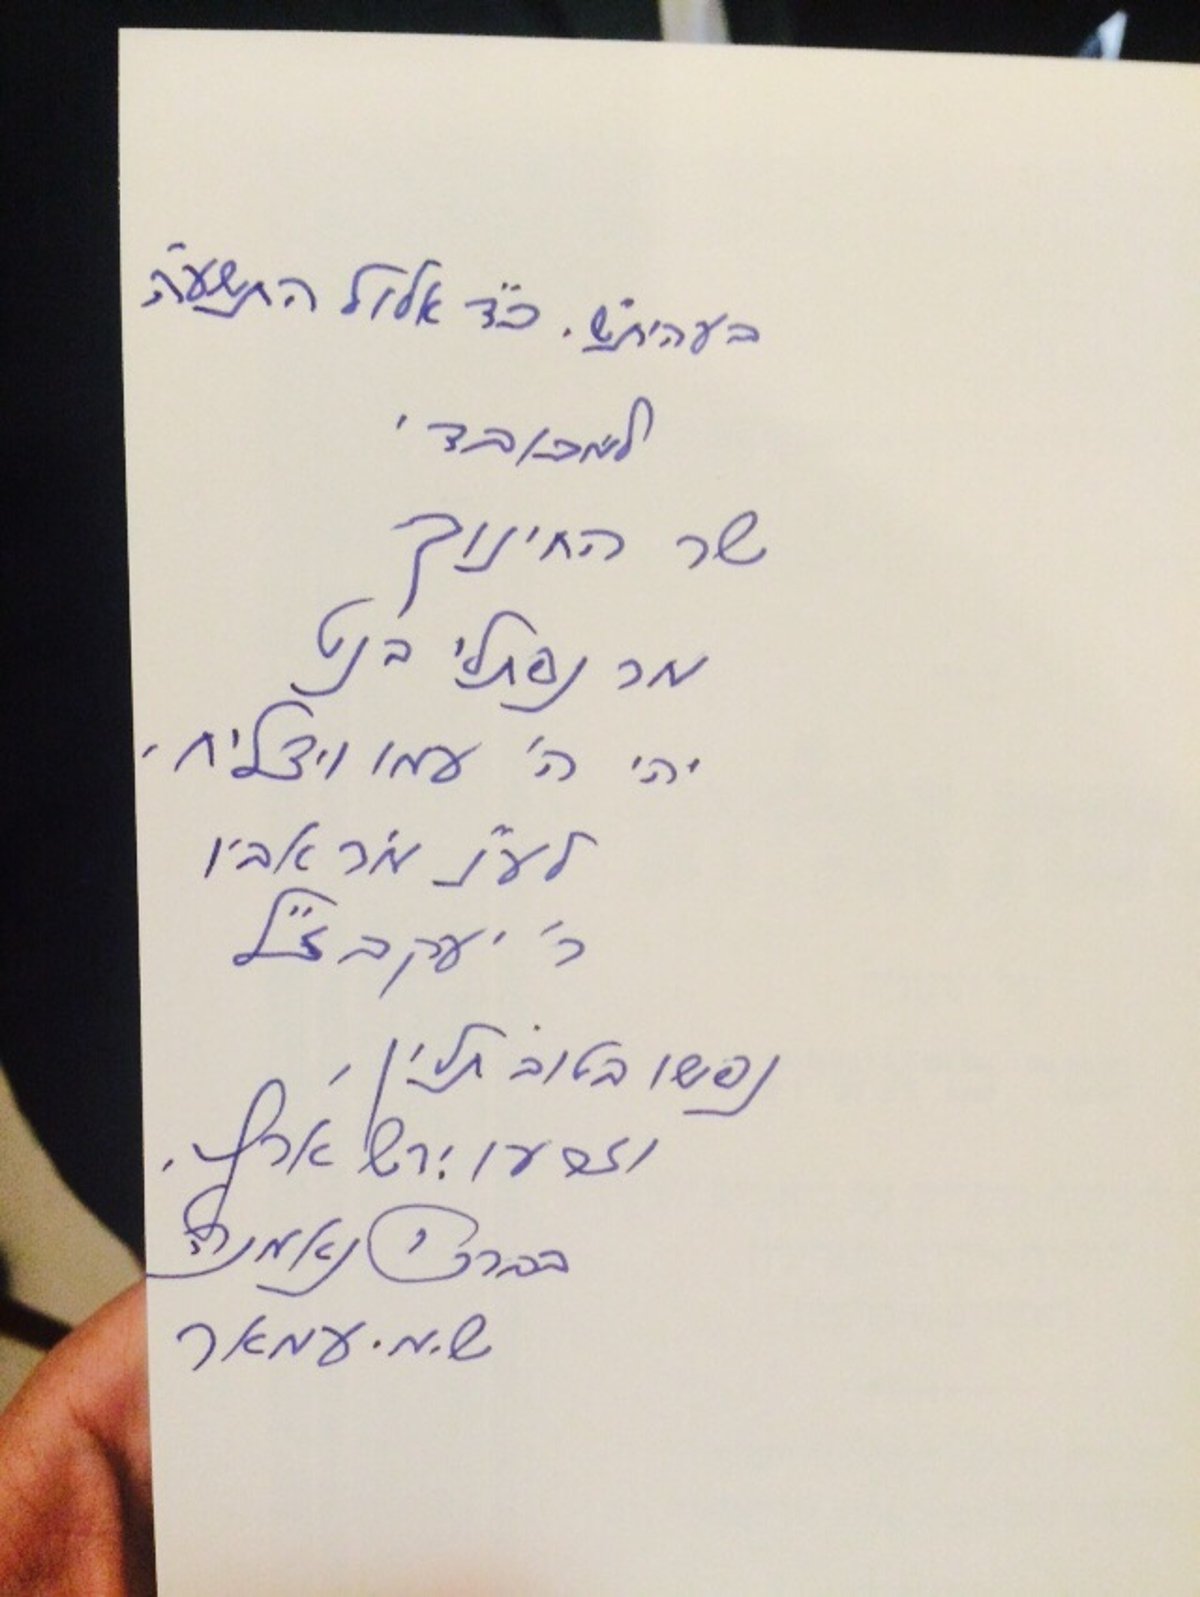 בעהית"ש. כ"ד אלול התשע"ה
למכובדי
שר החינוך
מר נפתלי בנט
יהי ה' עמו ויצליח,
לע"נ מ"ר אביו
ר' יעקב ז"ל
נפשו בטוב תלין,
וזרעו יירש ארץ.
בברכה נאמנה
ש.מ. עמאר